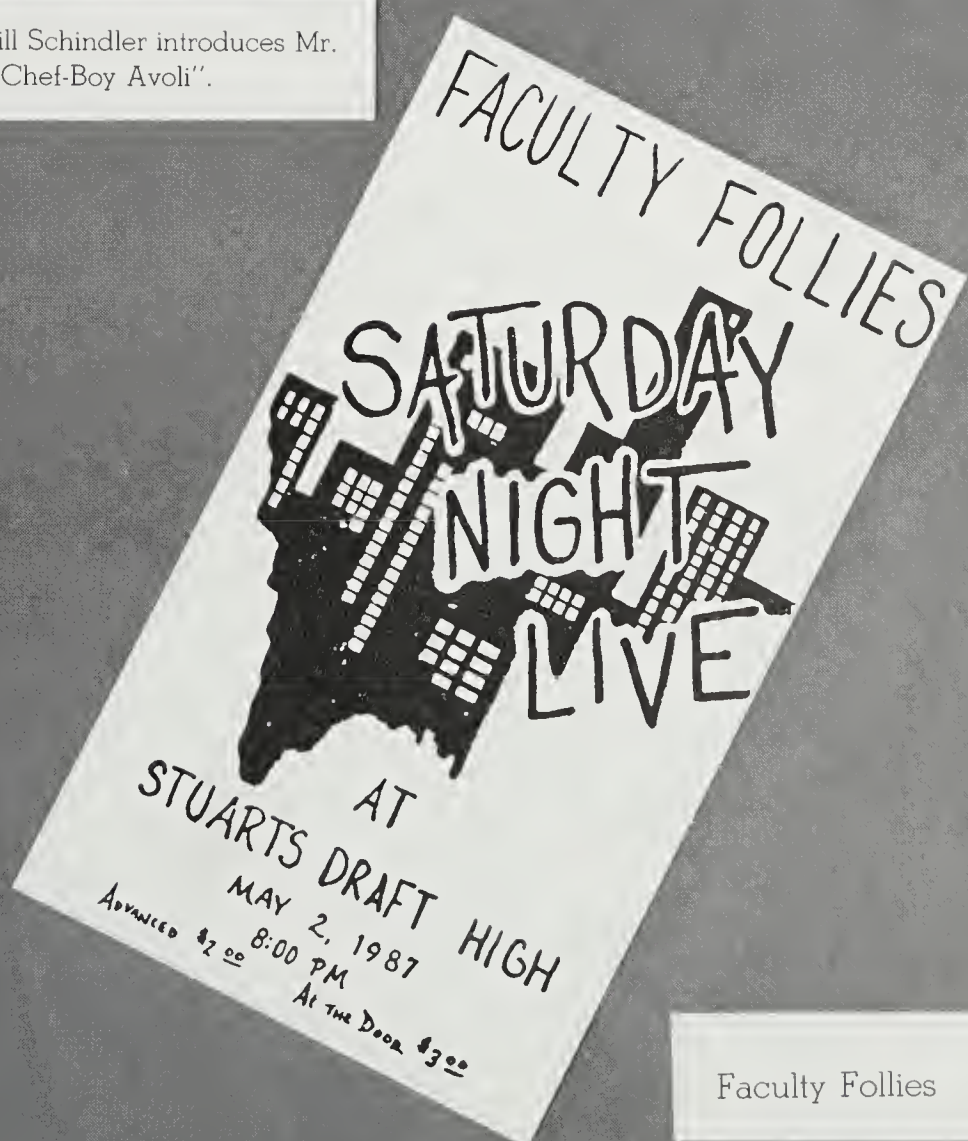 ill Schindler introduces Mr.
Chef-Boy Avoli".
FACULTY FOLLIES
SATURDAY
NIGHT
LIVE
AT
STUARTS DRAFT HIGH
MAY 2, 1987
8:00 PM
ADVANCED $2.00
AT THE DOOR $3.00
Faculty Follies